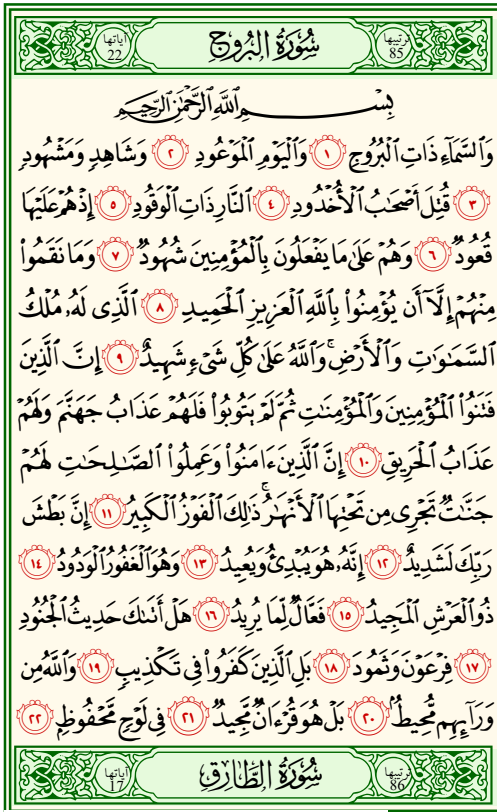 ترتيبها 85 سُورَةُ البُرُوجِ آياتها 22
بِسْمِ اللَّهِ الرَّحْمَٰنِ الرَّحِيمِ
وَالسَّمَآءِ ذَاتِ الْبُرُوجِ ١ وَالْيَوْمِ الْمَوْعُودِ ٢ وَشَاهِدٍ وَمَشْهُودٍ
٣ قُتِلَ أَصْحَٰبُ الْأُخْدُودِ ٤ النَّارِ ذَاتِ الْوَقُودِ ٥ إِذْ هُمْ عَلَيْهَا
قُعُودٌ ٦ وَهُمْ عَلَىٰ مَا يَفْعَلُونَ بِالْمُؤْمِنِينَ شُهُودٌ ٧ وَمَا نَقَمُوا۟
مِنْهُمْ إِلَّآ أَن يُؤْمِنُوا۟ بِاللَّهِ الْعَزِيزِ الْحَمِيدِ ٨ الَّذِى لَهُۥ مُلْكُ
السَّمَٰوَٰتِ وَالْأَرْضِ ۚ وَاللَّهُ عَلَىٰ كُلِّ شَىْءٍ شَهِيدٌ ٩ إِنَّ الَّذِينَ
فَتَنُوا۟ الْمُؤْمِنِينَ وَالْمُؤْمِنَٰتِ ثُمَّ لَمْ يَتُوبُوا۟ فَلَهُمْ عَذَابُ جَهَنَّمَ وَلَهُمْ
عَذَابُ الْحَرِيقِ ١٠ إِنَّ الَّذِينَ ءَامَنُوا۟ وَعَمِلُوا۟ الصَّٰلِحَٰتِ لَهُمْ
جَنَّٰتٌ تَجْرِى مِن تَحْتِهَا الْأَنْهَٰرُ ۚ ذَٰلِكَ الْفَوْزُ الْكَبِيرُ ١١ إِنَّ بَطْشَ
رَبِّكَ لَشَدِيدٌ ١٢ إِنَّهُۥ هُوَ يُبْدِئُ وَيُعِيدُ ١٣ وَهُوَ الْغَفُورُ الْوَدُودُ ١٤
ذُو الْعَرْشِ الْمَجِيدُ ١٥ فَعَّالٌ لِّمَا يُرِيدُ ١٦ هَلْ أَتَىٰكَ حَدِيثُ الْجُنُودِ
١٧ فِرْعَوْنَ وَثَمُودَ ١٨ بَلِ الَّذِينَ كَفَرُوا۟ فِى تَكْذِيبٍ ١٩ وَاللَّهُ مِن
وَرَآئِهِم مُّحِيطٌ ٢٠ بَلْ هُوَ قُرْءَانٌ مَّجِيدٌ ٢١ فِى لَوْحٍ مَّحْفُوظٍ ٢٢
ترتيبها 86 سُورَةُ الطَّارِقِ آياتها 17